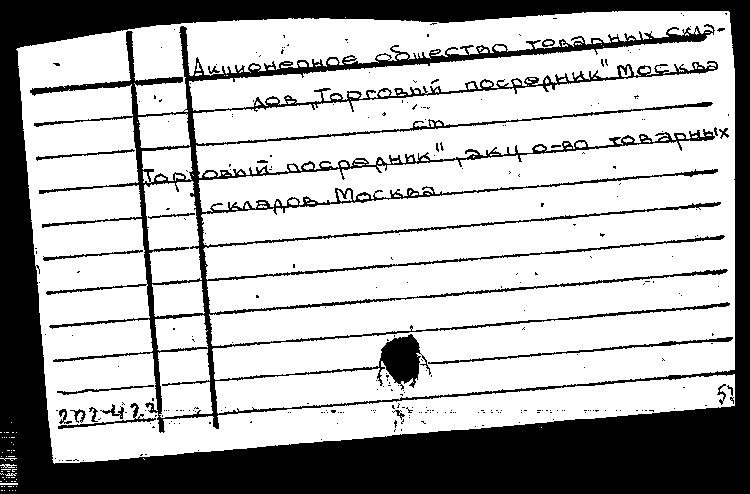 Акционерное общество товарных скла-
дов „Торговый посредник" Москва
см
Торговый посредник", акц о-во товарных
складов. Москва.
202-422